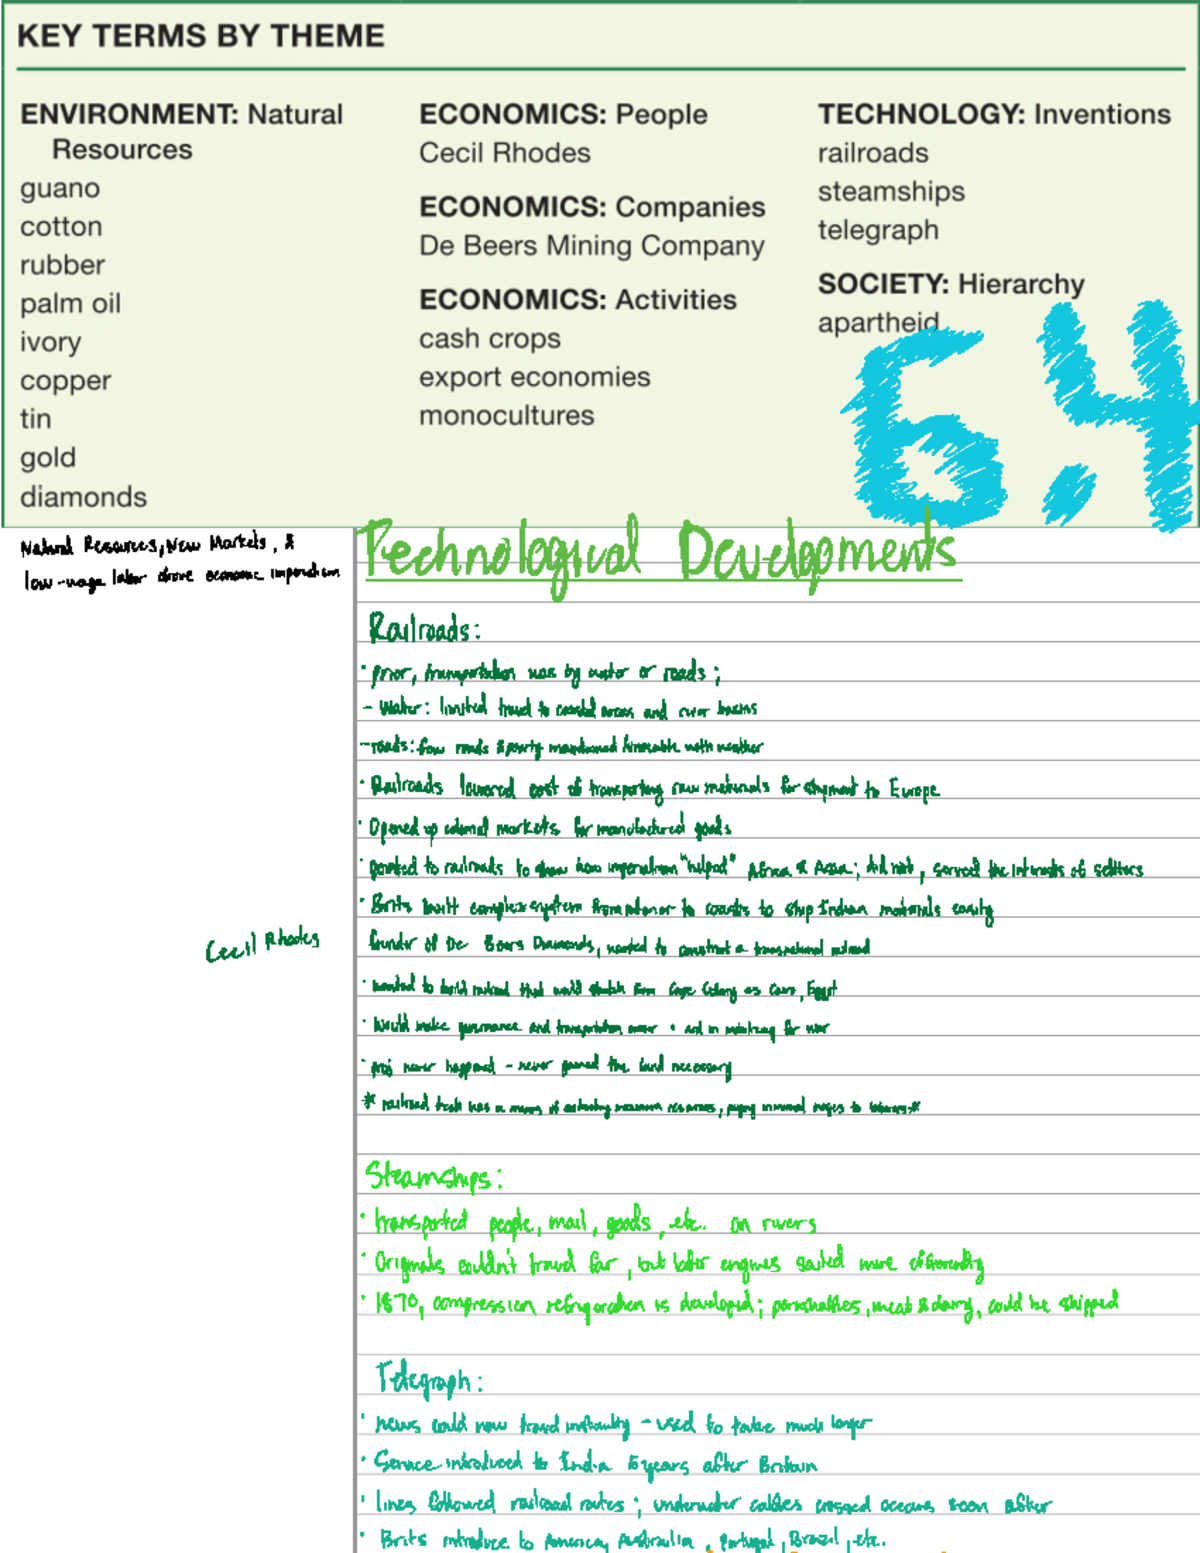 KEY TERMS BY THEME
ENVIRONMENT: Natural
Resources
guano
cotton
rubber
palm oil
ivory
copper
tin
gold
diamonds
ECONOMICS: People
Cecil Rhodes
ECONOMICS: Companies
De Beers Mining Company
ECONOMICS: Activities
cash crops
export economies
monocultures
TECHNOLOGY: Inventions
railroads
steamships
telegraph
SOCIETY: Hierarchy
apartheid
6.4
Natural Resources, New Markets, &
low-wage labor drove economic imperialism
Technological Developments
Railroads:
• prior, transportation was by water or roads;
- Water: limited travel to coastal areas and river basins
- roads: few roads & poorly maintained with weather
• Railroads lowered cost of transporting raw materials for shipment to Europe
• Opened up colonial markets for manufactured goods
• pointed to railroads to show how imperialism "helped" Africa & Asia; did not, served the interests of settlers
• Brits built complex system from interior to coasts to ship Indian materials easily
Cecil Rhodes
founder of De Beers Diamonds, wanted to construct a transnational railroad
• wanted to build railroad that would stretch from Cape Colony to Cairo, Egypt
• Would make governance and transportation easier + aid in mobilizing for war
• proj never happened - never gained the land necessary
* railroad was a means of extracting maximum resources, paying minimal wages to laborers *
Steamships:
• transported people, mail, goods, etc. on rivers
• Originals couldn't travel far, but later engines sailed more efficiently
• 1870, compression refrigeration is developed; perishables, meat & dairy, could be shipped
Telegraph:
• news could now travel instantly - used to take much longer
• Service introduced to India 5 years after Britain
• lines followed railroad routes; underwater cables crossed oceans soon after
• Brits introduce to America, Australia, Portugal, Brazil, etc.